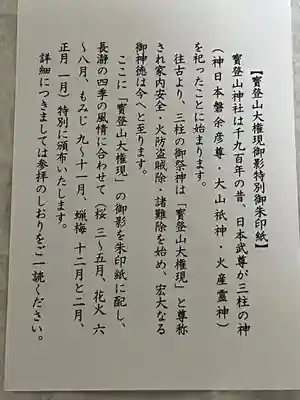 【寳登山大権現御影特別御朱印紙】
寳登山神社は千九百年の昔、日本武尊が三柱の神
（神日本磐余彦尊・大山祇神・火産霊神）
を祀ったことに始まります。
往古より、三柱の御祭神は「寳登山大権現」と尊称
され家内安全・火防盗賊除・諸難除を始め、宏大なる
御神徳は今へと至ります。
ここに「寳登山大権現」の御影を朱印紙に配し、
長瀞の四季の風情に合わせて（桜 三～五月、花火 六
～八月、もみじ 九～十一月、蝋梅 十二月と二月、
正月 一月）特別に頒布いたします。
詳細につきましては参拝のしおりをご一読ください。